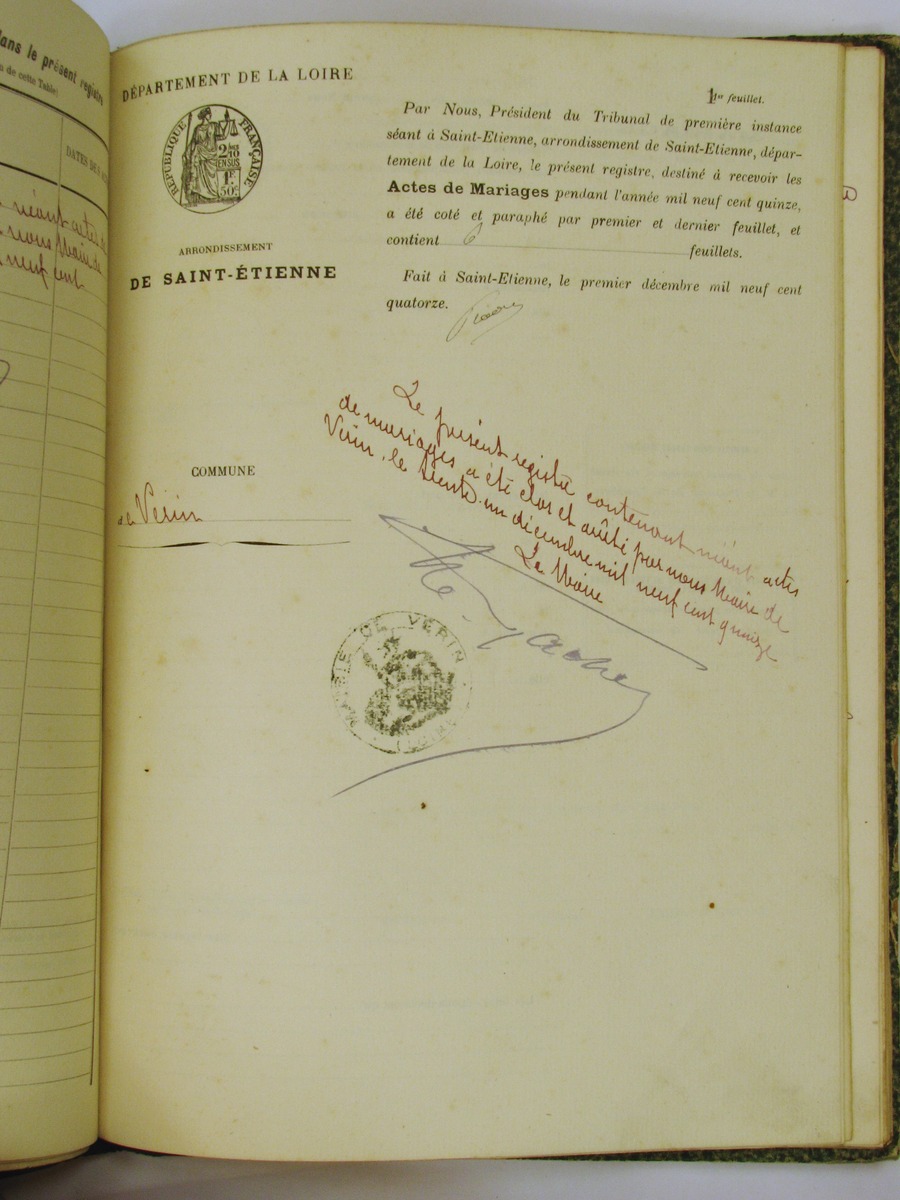 dans le présent registre
de cette Table)
DATES DES
néant actes
nous Maire de
neuf cent
DÉPARTEMENT DE LA LOIRE
RÉPUBLIQUE FRANÇAISE
2/10 EN SUS
1F 50c
ARRONDISSEMENT
DE SAINT-ÉTIENNE
COMMUNE
de Vérin
1er feuillet.
Par Nous, Président du Tribunal de première instance
séant à Saint-Etienne, arrondissement de Saint-Etienne, dépar-
tement de la Loire, le présent registre, destiné à recevoir les
Actes de Mariages pendant l'année mil neuf cent quinze,
a été coté et paraphé par premier et dernier feuillet, et
contient 6 feuillets.
Fait à Saint-Etienne, le premier décembre mil neuf cent
quatorze.
Le présent registre contenant néant actes
de mariages a été clos et arrêté par nous Maire de
Vérin, le trente-un décembre mil neuf cent quinze
Le Maire
MAIRIE DE VERIN
(LOIRE)